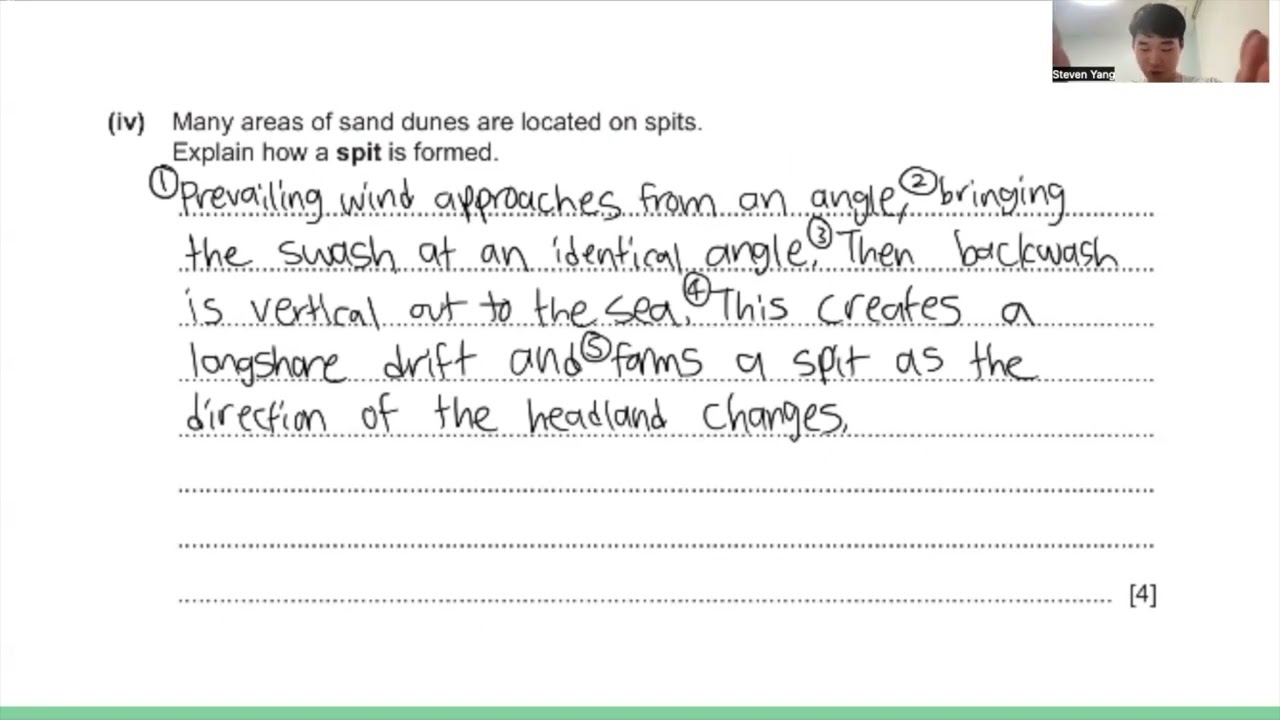 Steven Yang
(iv) Many areas of sand dunes are located on spits.
Explain how a spit is formed.
① Prevailing wind approaches from an angle, ② bringing
the swash at an identical angle. ③ Then backwash
is vertical out to the sea. ④ This creates a
longshore drift and ⑤ forms a spit as the
direction of the headland changes.
[4]